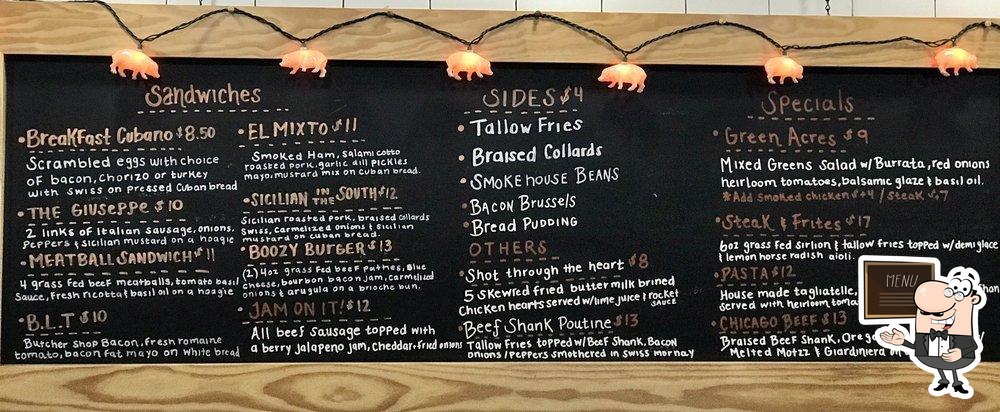 Sandwiches
• Breakfast Cubano $8.50
Scrambled eggs with choice
of bacon, chorizo or turkey
with swiss on pressed Cuban bread
• THE GIUSEPPE $10
2 links of Italian sausage, onions,
Peppers & sicilian mustard on a hoagie
• MEATBALL SANDWICH $11
4 grass fed beef meatballs, tomato basil
Sauce, Fresh ricotta & basil oil on a hoagie
• B.L.T $10
Butcher Shop Bacon, fresh romaine
tomato, bacon fat mayo on white bread
• EL MIXTO $11
Smoked Ham, Salami cotto
roasted pork, garlic dill pickles
mayo, mustard mix on Cuban bread.
• SICILIAN IN THE SOUTH $12
Sicilian roasted pork, braised collards
Swiss, Carmelized onions & sicilian
mustard on cuban bread.
BOOZY BURGER $13
(2) 4oz grass fed beef patties, Blue
Cheese, bourbon bacon jam, Carmelized
onions & arugula on a brioche bun.
• JAM ON IT! $12
All beef Sausage topped with
a berry jalapeno jam, Cheddar & fried onions
SIDES $4
• Tallow Fries
• Braised Collards
• SMOKEHOUSE BEANS
• BACON Brussels
• Bread PUDDING
OTHERS
• Shot through the heart $8
5 skewered fried buttermilk brined
Chicken hearts served w/lime juice & rocket
sauce
• Beef Shank Poutine $13
Tallow Fries topped w/ Beef Shank, Bacon
onions/peppers smothered in swiss mornay
Specials
• Green Acres $9
Mixed Greens Salad w/ Burrata, red onions
heirloom tomatoes, balsamic glaze & basil oil.
*Add smoked chicken $+4 / steak $+7
• Steak & Frites $17
6oz grass fed sirlion & tallow fries topped w/ demi glace
& lemon horse radish aioli.
• PASTA $12
House made tagliatelle,
served with heirloom
• CHICAGO BEEF $13
Braised Beef Shank,
Melted Motzz & Giardiniera
MENU